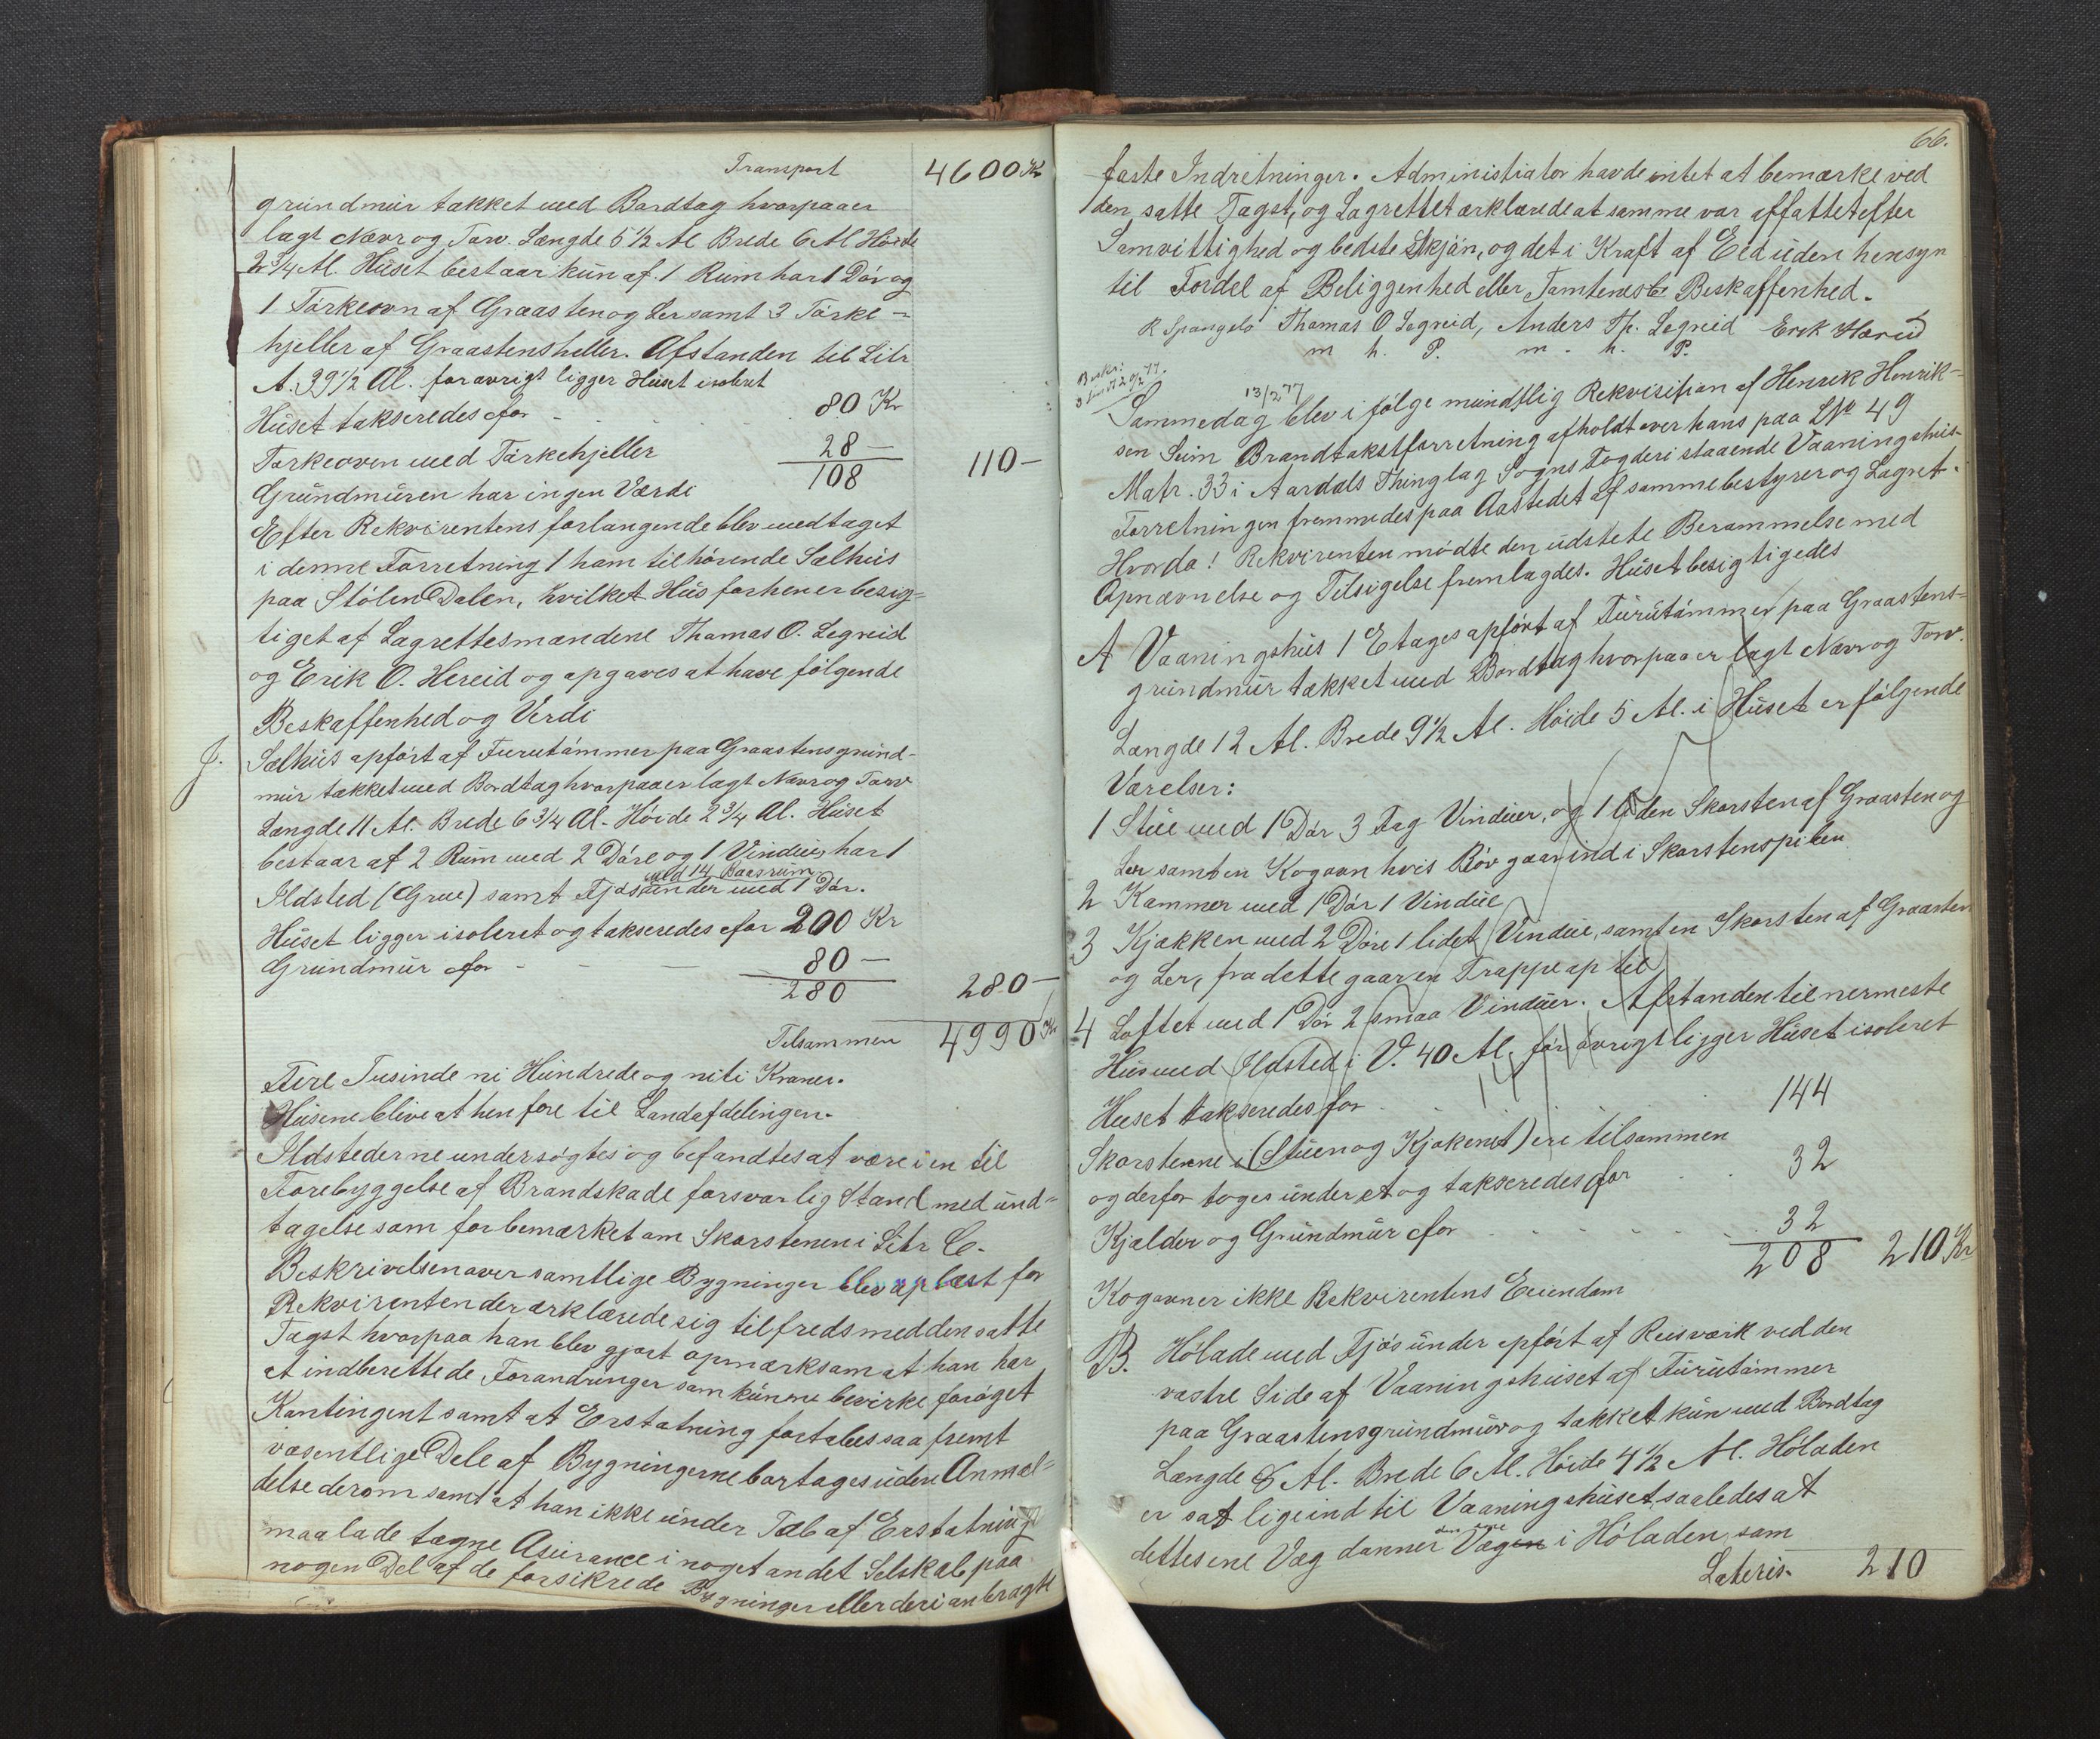 Transport 4600 Kr
grundmur tækket med Bordtag hvorpaaer
lagt Næver og Torv. Længde 5 1/2 Al Brede 6 Al Høide
2 3/4 Al. Huset bestaar kun af 1 Rum har 1 Dör og
1 Tørkeovn af Graasten og Ler samt 3 Tørke-
hjeller af Graastensheller. Afstanden til Litr
A. 39 1/2 Al. forøvrigt ligger Huset isoleret
Huset takseredes for - 80 Kr
Tørkeovn med Tørkehjeller 28 — 110 —
108
Grundmuren har ingen Værdi
Efter Rekvirentens forlangende blev medtaget
i denne Forretning 1 ham tilhørende Sælhus
paa Stølen Dalen, hvilket Hus forhen er besig=
tiget af Lagrettesmændene Thomas O. Legreid
og Erik O. Hereid og opgaves at have følgende
Beskaffenhed og Verdi
J. Sælhus opført af Furutømmer paa Graastensgrund-
mur tækket med Bordtag hvorpaaer lagt Næver og Torv
Længde 11 Al. Brede 6 3/4 Al. Høide 2 3/4 Al. Huset
bestaar af 2 Rum med 2 Døre og 1 Vindue, har 1
med 14 Baasrum
Ildsted (Grue) samt Fjøs under med 1 Dör.
Huset ligger isoleret og takseredes for 200 Kr
Grundmur for - - 80 —
280 280 —
Tilsammen 4990 Kr
Fire Tusinde ni Hundrede og niti Kroner.
Husene blive at henføre til Landafdelingen.
Ildstederne undersøgtes og befandtes at være i en til
Forebyggelse af Brandskade forsvarlig Stand med und=
tagelse som før bemærket om Skorstenen i Litr C.
Beskrivelsen over samtlige Bygninger blev oplæst for
Rekvirenten der erklærede sig tilfreds med den satte
Tagst hvorpaa han blev gjort opmærksom at han har
at indberettede Forandringer som kunne bevirke forøget
Kontingent samt at Erstatning fortabes saafremt
væsentlige Dele af Bygningerne bortages uden Anmæl=
delse derom samt at han ikke under Tab af Erstatning
maa lade tegne Asurance i noget andet Selskab paa
nogen Del af de forsikrede Bygninger eller deri anbragte
66.
faste Indretninger. Administrator havde intet at bemærke ved
den satte Tagst, og Lagrettet erklærede at samme var affattet efter
Samvittighed og bedste Skjön, og det i Kraft af Eed uden hensyn
til Fordel af Beliggenhed eller Tomtens Beskaffenhed.
R Spangelo Thomas O Legreid, Anders Th. Legreid Erik Hæreid
m. h. P. m. h. P.
Beskr:
13/2 77
Sammedag blev i følge mundtlig Rekvisition af Henrik Henrik=
sen Seim Brandtakstforretning afholdt over hans paa LNo 49
Matr. 33 i Aardals Thinglag Sogns Fogderi staaende Vaaningshus.
Forretningen fremmedes paa Aastedet af samme bestyrer og Lagret.
Hvorda! Rekvirenten mødte den udstete Berammelse med
Opnævnelse og Tilsigelse fremlagdes. Huset besigtigedes
A Vaaningshus 1 Etages opført af Furutømmer paa Graastens=
grundmur tækket med Bordtag hvorpaa er lagt Næver og Torv.
Længde 12 Al. Brede 9 1/2 Al. Høide 5 Al. i Huset er følgende
Værelser:
1 Stue med 1 Dör 3 Fag Vinduer, og 1 liden Skorsten af Graasten og
Ler samt en Kogovn hvis Rör gaar ind i Skorstenspiben
2 Kammer med 1 Dör 1 Vindue
3 Kjøkken med 2 Døre 1 lidet Vindue, samt en Skorsten af Graasten
og Ler, fra dette gaar en Trappe op til
4 Loftet med 1 Dör 2 smaa Vinduer. Afstanden til nermeste
Hus med Ildsted i V. 40 Al. for øvrigt ligger Huset isoleret
Huset takseredes for 144
Skorstene i (Stuen og Kjøkenet) ere tilsammen
og derfor toges under et og takseredes for 32
Kjælder og Grundmur for 32
208 210 Kr
Kogovn er ikke Rekvirentens Eiendom
B. Hølade med Fjøs under opført af Reisværk ved den
vestre Side af Vaaningshuset af Furutømmer
paa Graastensgrundmur og tækket kun med Bordtag
Længde 8 Al. Brede 6 Al. Høide 4 1/2 Al. Høladen
er sat lige ind til Vaaningshuset, saaledes at
den ene
dettes ene Væg danner Vægen i Høladen, som
Lateris. 210